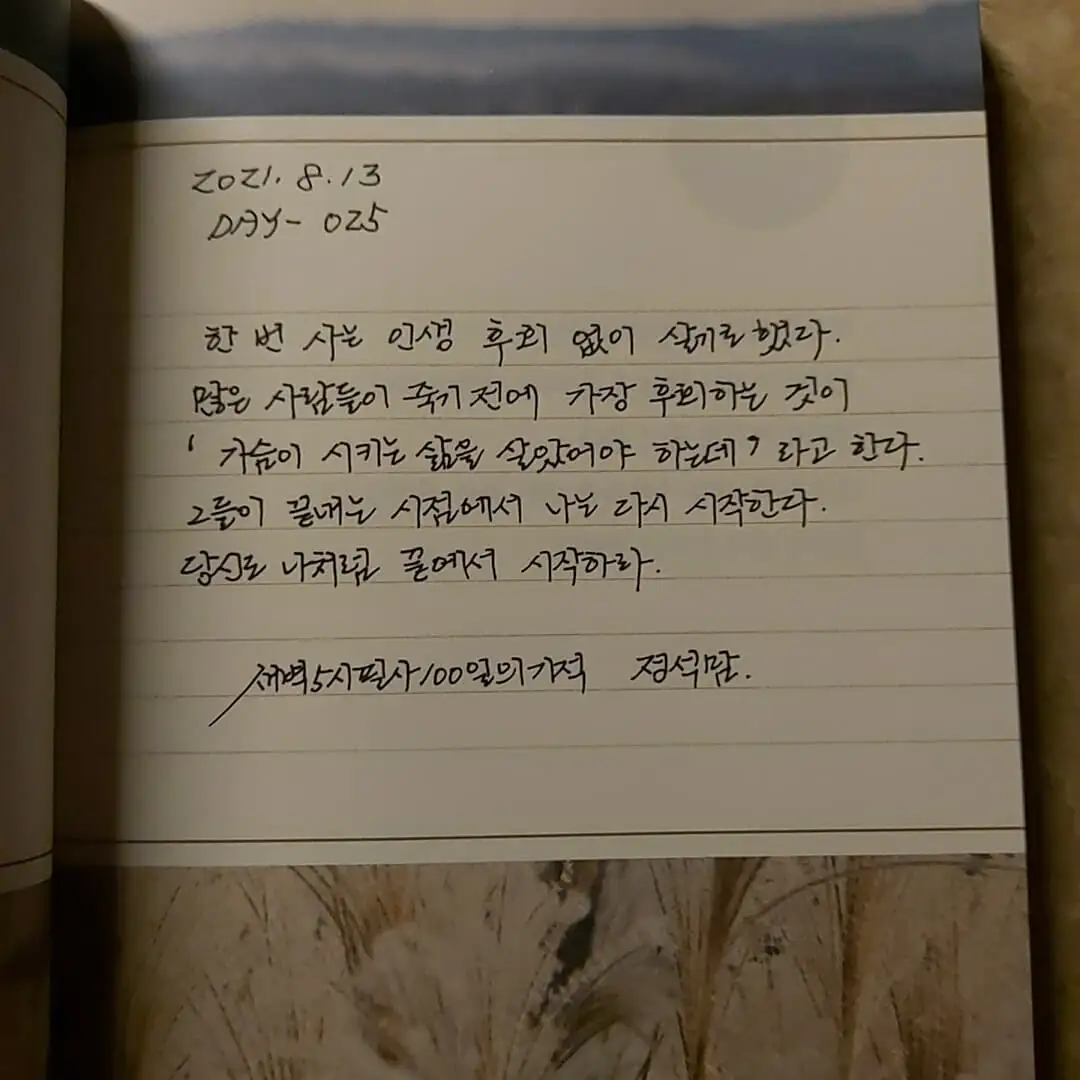 2021. 8. 13
DAY- 025
한 번 사는 인생 후회 없이 살기로 했다.
많은 사람들이 죽기 전에 가장 후회하는 것이
' 가슴이 시키는 삶을 살았어야 하는데 ' 라고 한다.
그들이 끝내는 시점에서 나는 다시 시작한다.
당신도 나처럼 끝에서 시작하라.
새벽5시필사100일의기적 정석맘.